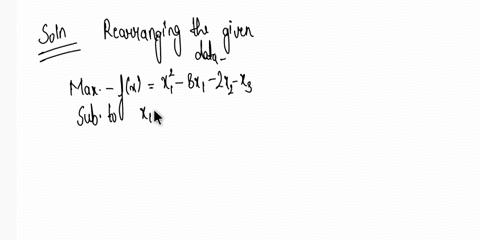 Soln Rearranging the given
data-
Max. - f(x) = x₁² - 8x₁ - 2x₂ - x₃
Sub. to x₁